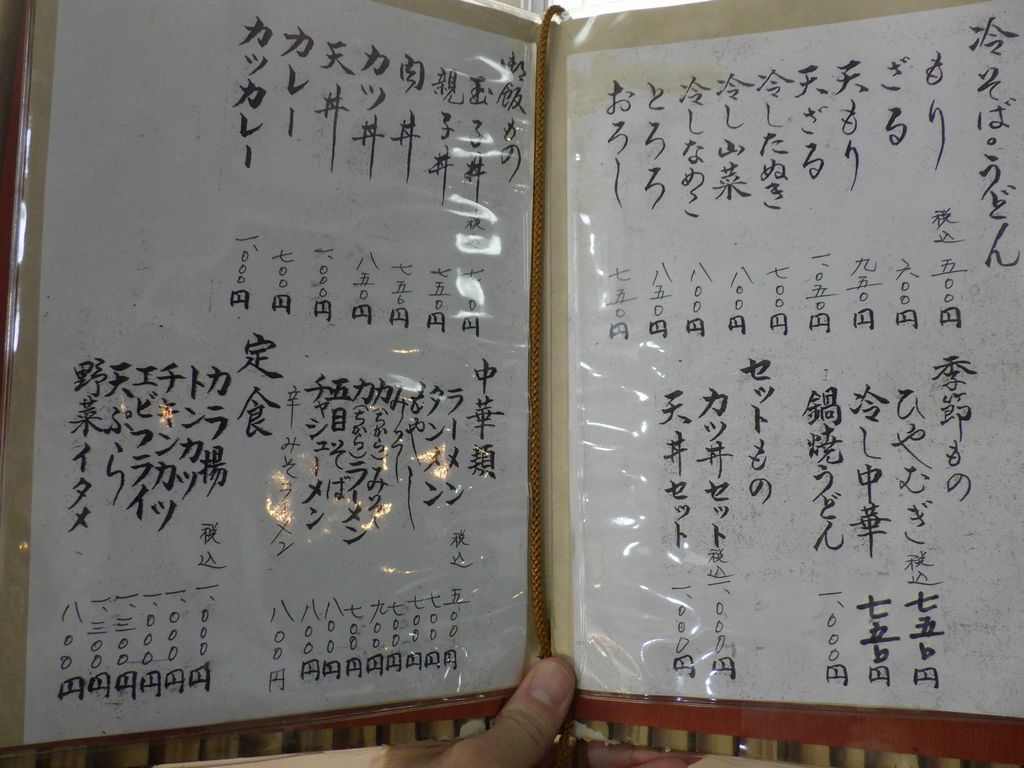 冷そば。うどん
もり 税込 五〇〇円
ざる 六〇〇円
天もり 九五〇円
天ざる 一、〇五〇円
冷したぬき 七〇〇円
冷し山菜 八〇〇円
冷しなめこ 八〇〇円
とろろ 八五〇円
おろし 七五〇円
季節もの
ひやむぎ 税込 七五〇円
冷し中華 七五〇円
鍋焼うどん 一、〇〇〇円
セットもの
カツ丼セット 税込 一、〇〇〇円
天丼セット 一、〇〇〇円
御飯もの
玉子丼 税込 七〇〇円
親子丼 七五〇円
肉丼 七五〇円
カツ丼 八五〇円
天丼 一、〇〇〇円
カレー 七〇〇円
カツカレー 一、〇〇〇円
中華類
ラーメン 税込 五〇〇円
タンメン 七〇〇円
もやし 七〇〇円
七〇〇円
九〇〇円
力(ちから)ラーメン 七〇〇円
五目そば 八〇〇円
チャシューメン 八〇〇円
辛みそラーメン 八〇〇円
定食
カラ揚 税込 一、〇〇〇円
トンカツ 一、〇〇〇円
チキンカツ 一、〇〇〇円
エビフライ 一、三〇〇円
天ぷら 一、三〇〇円
野菜イタメ 八〇〇円